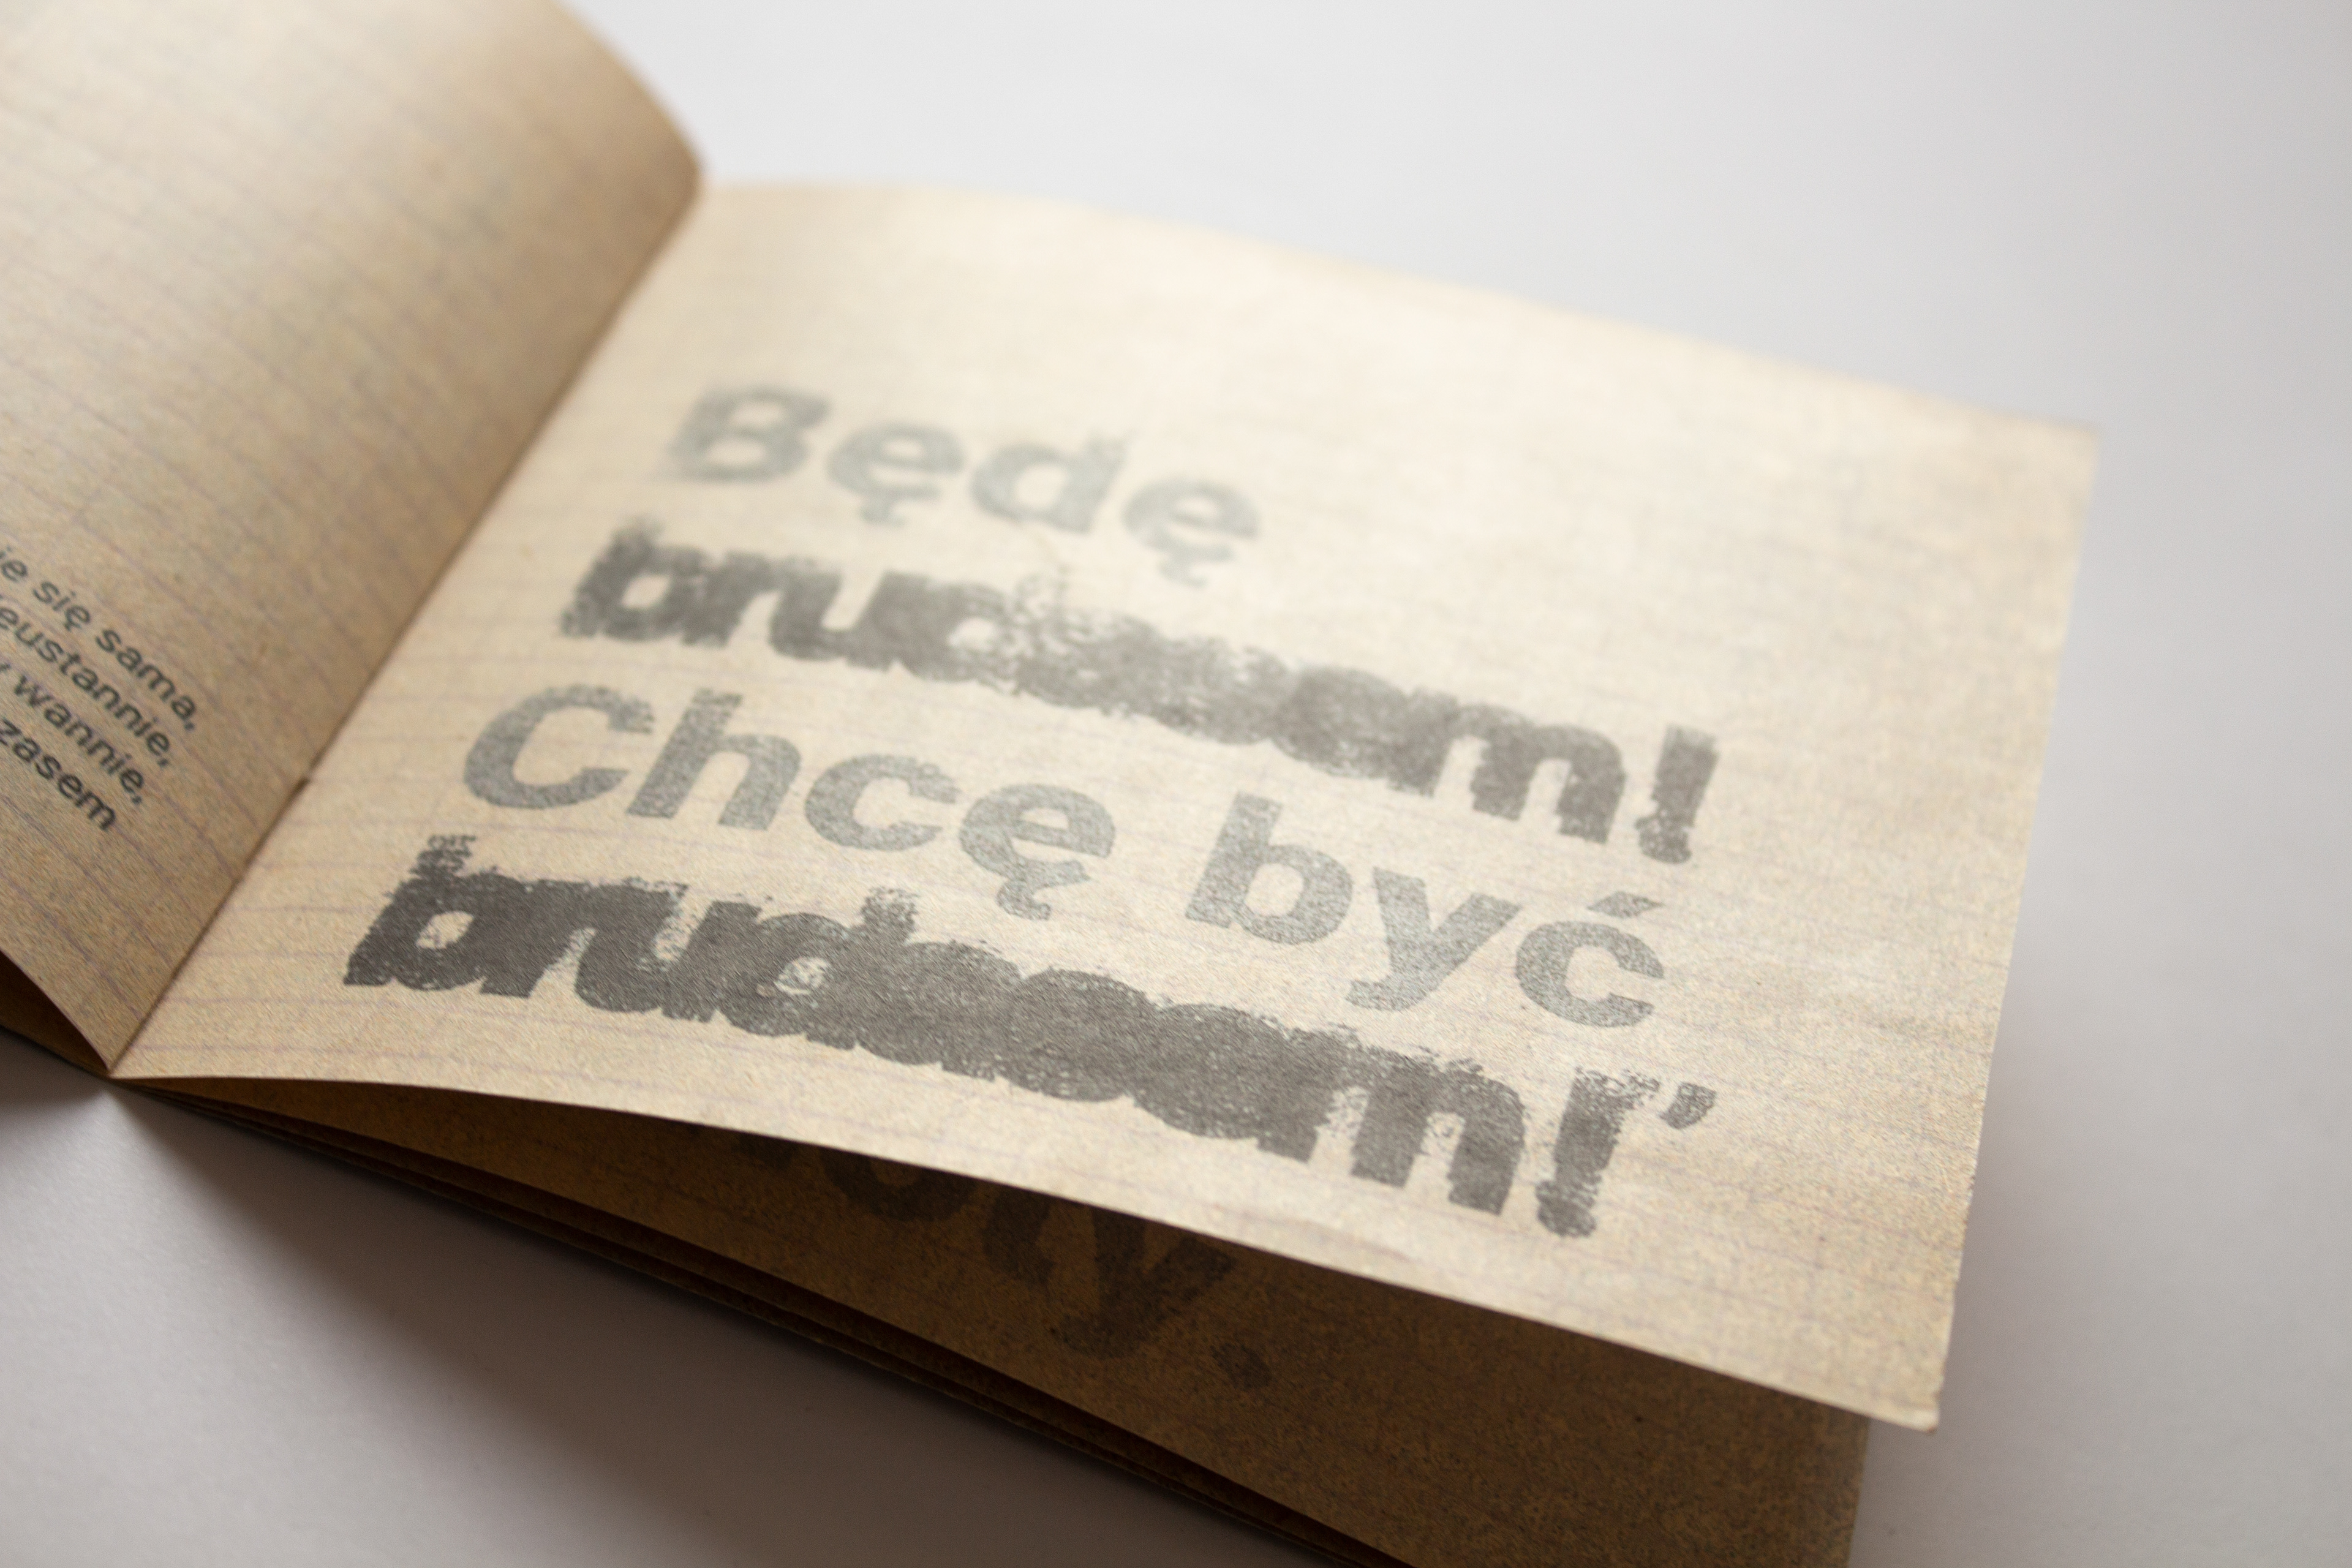 ie się sama,
eustannie,
wannie,
zasem
Będę
brudasem!
Chcę być
brudasem!’